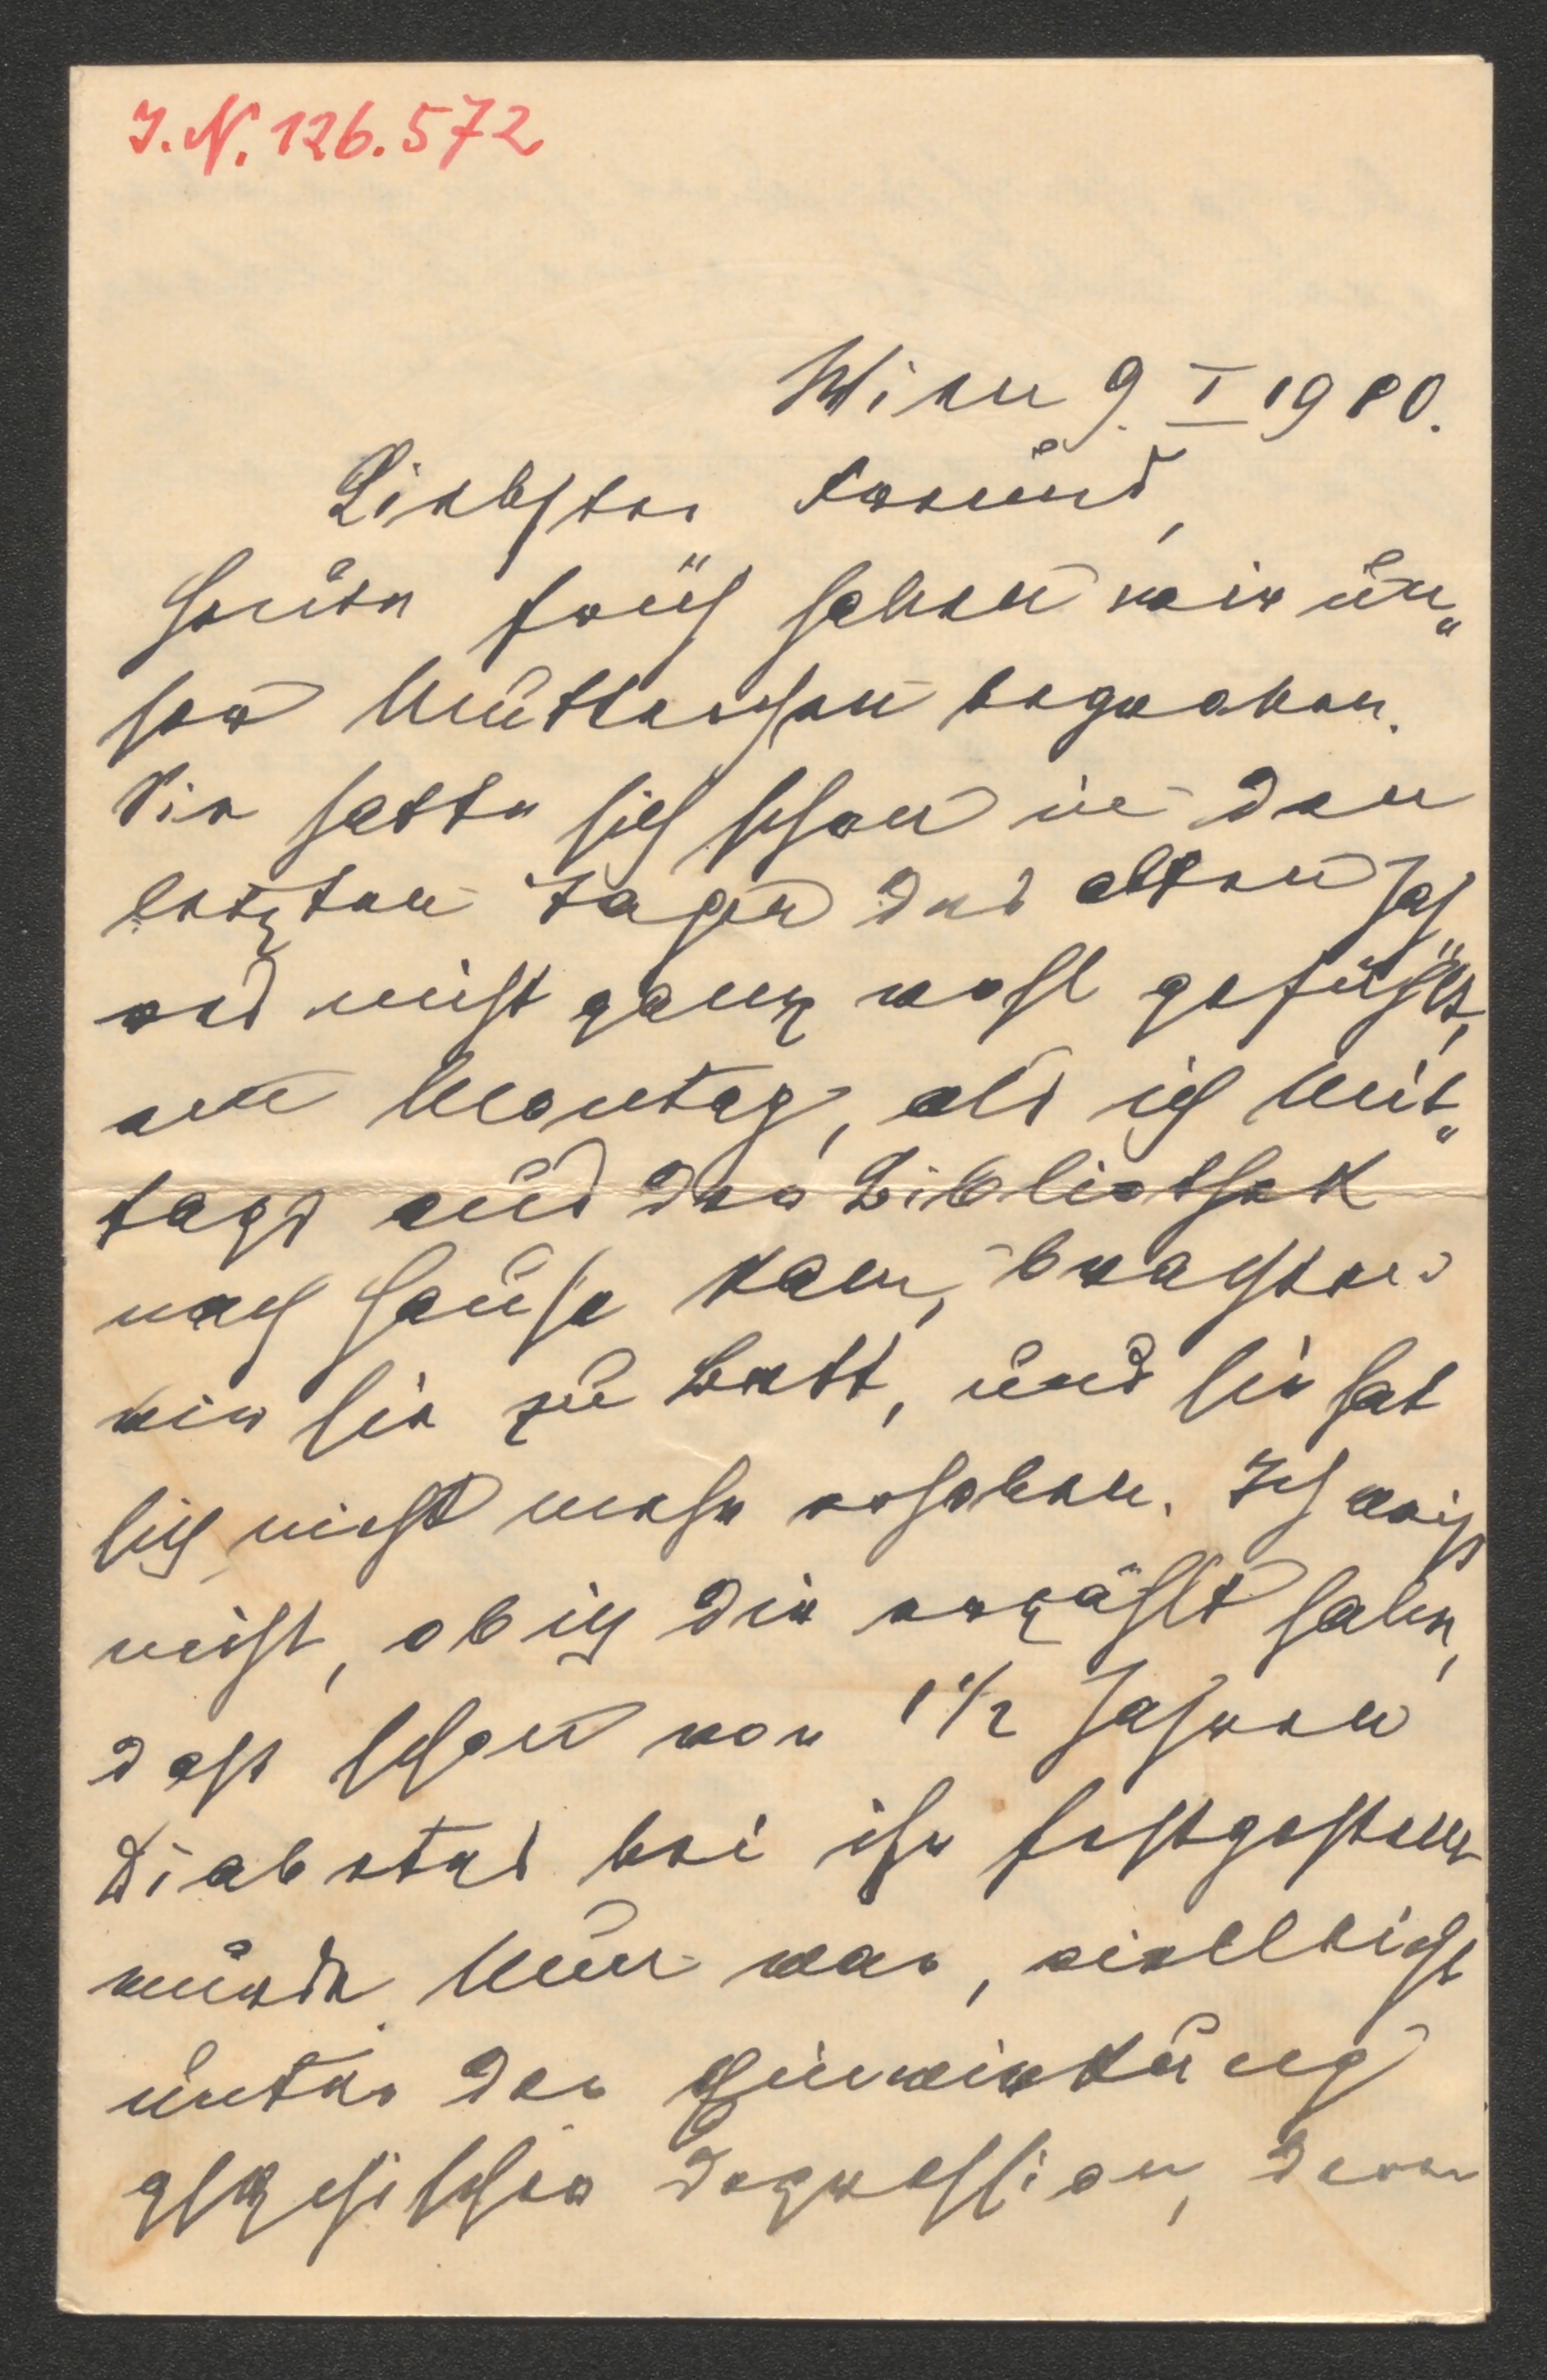 I. N. 126.572
Wien 9. I 1910.
Liebster Freund,
heute früh haben wir un„
ser Mütterchen begraben.
Sie hatte sich schon in den
letzten Tagen des alten Jah
res nicht ganz wohl gefühlt,
am Montag, als ich Mit„
tags aus der Bibliothek
nach Hause kam, brachten
wir sie zu Bett, und sie hat
sich nicht mehr erhoben. Ich weiß
nicht, ob ich Dir erzählt habe,
daß schon vor 1 1/2 Jahren
Diabetes bei ihr festgestellt
wurde. Nun war, vielleicht
unter der Einwirkung
psychischer Depression, deren